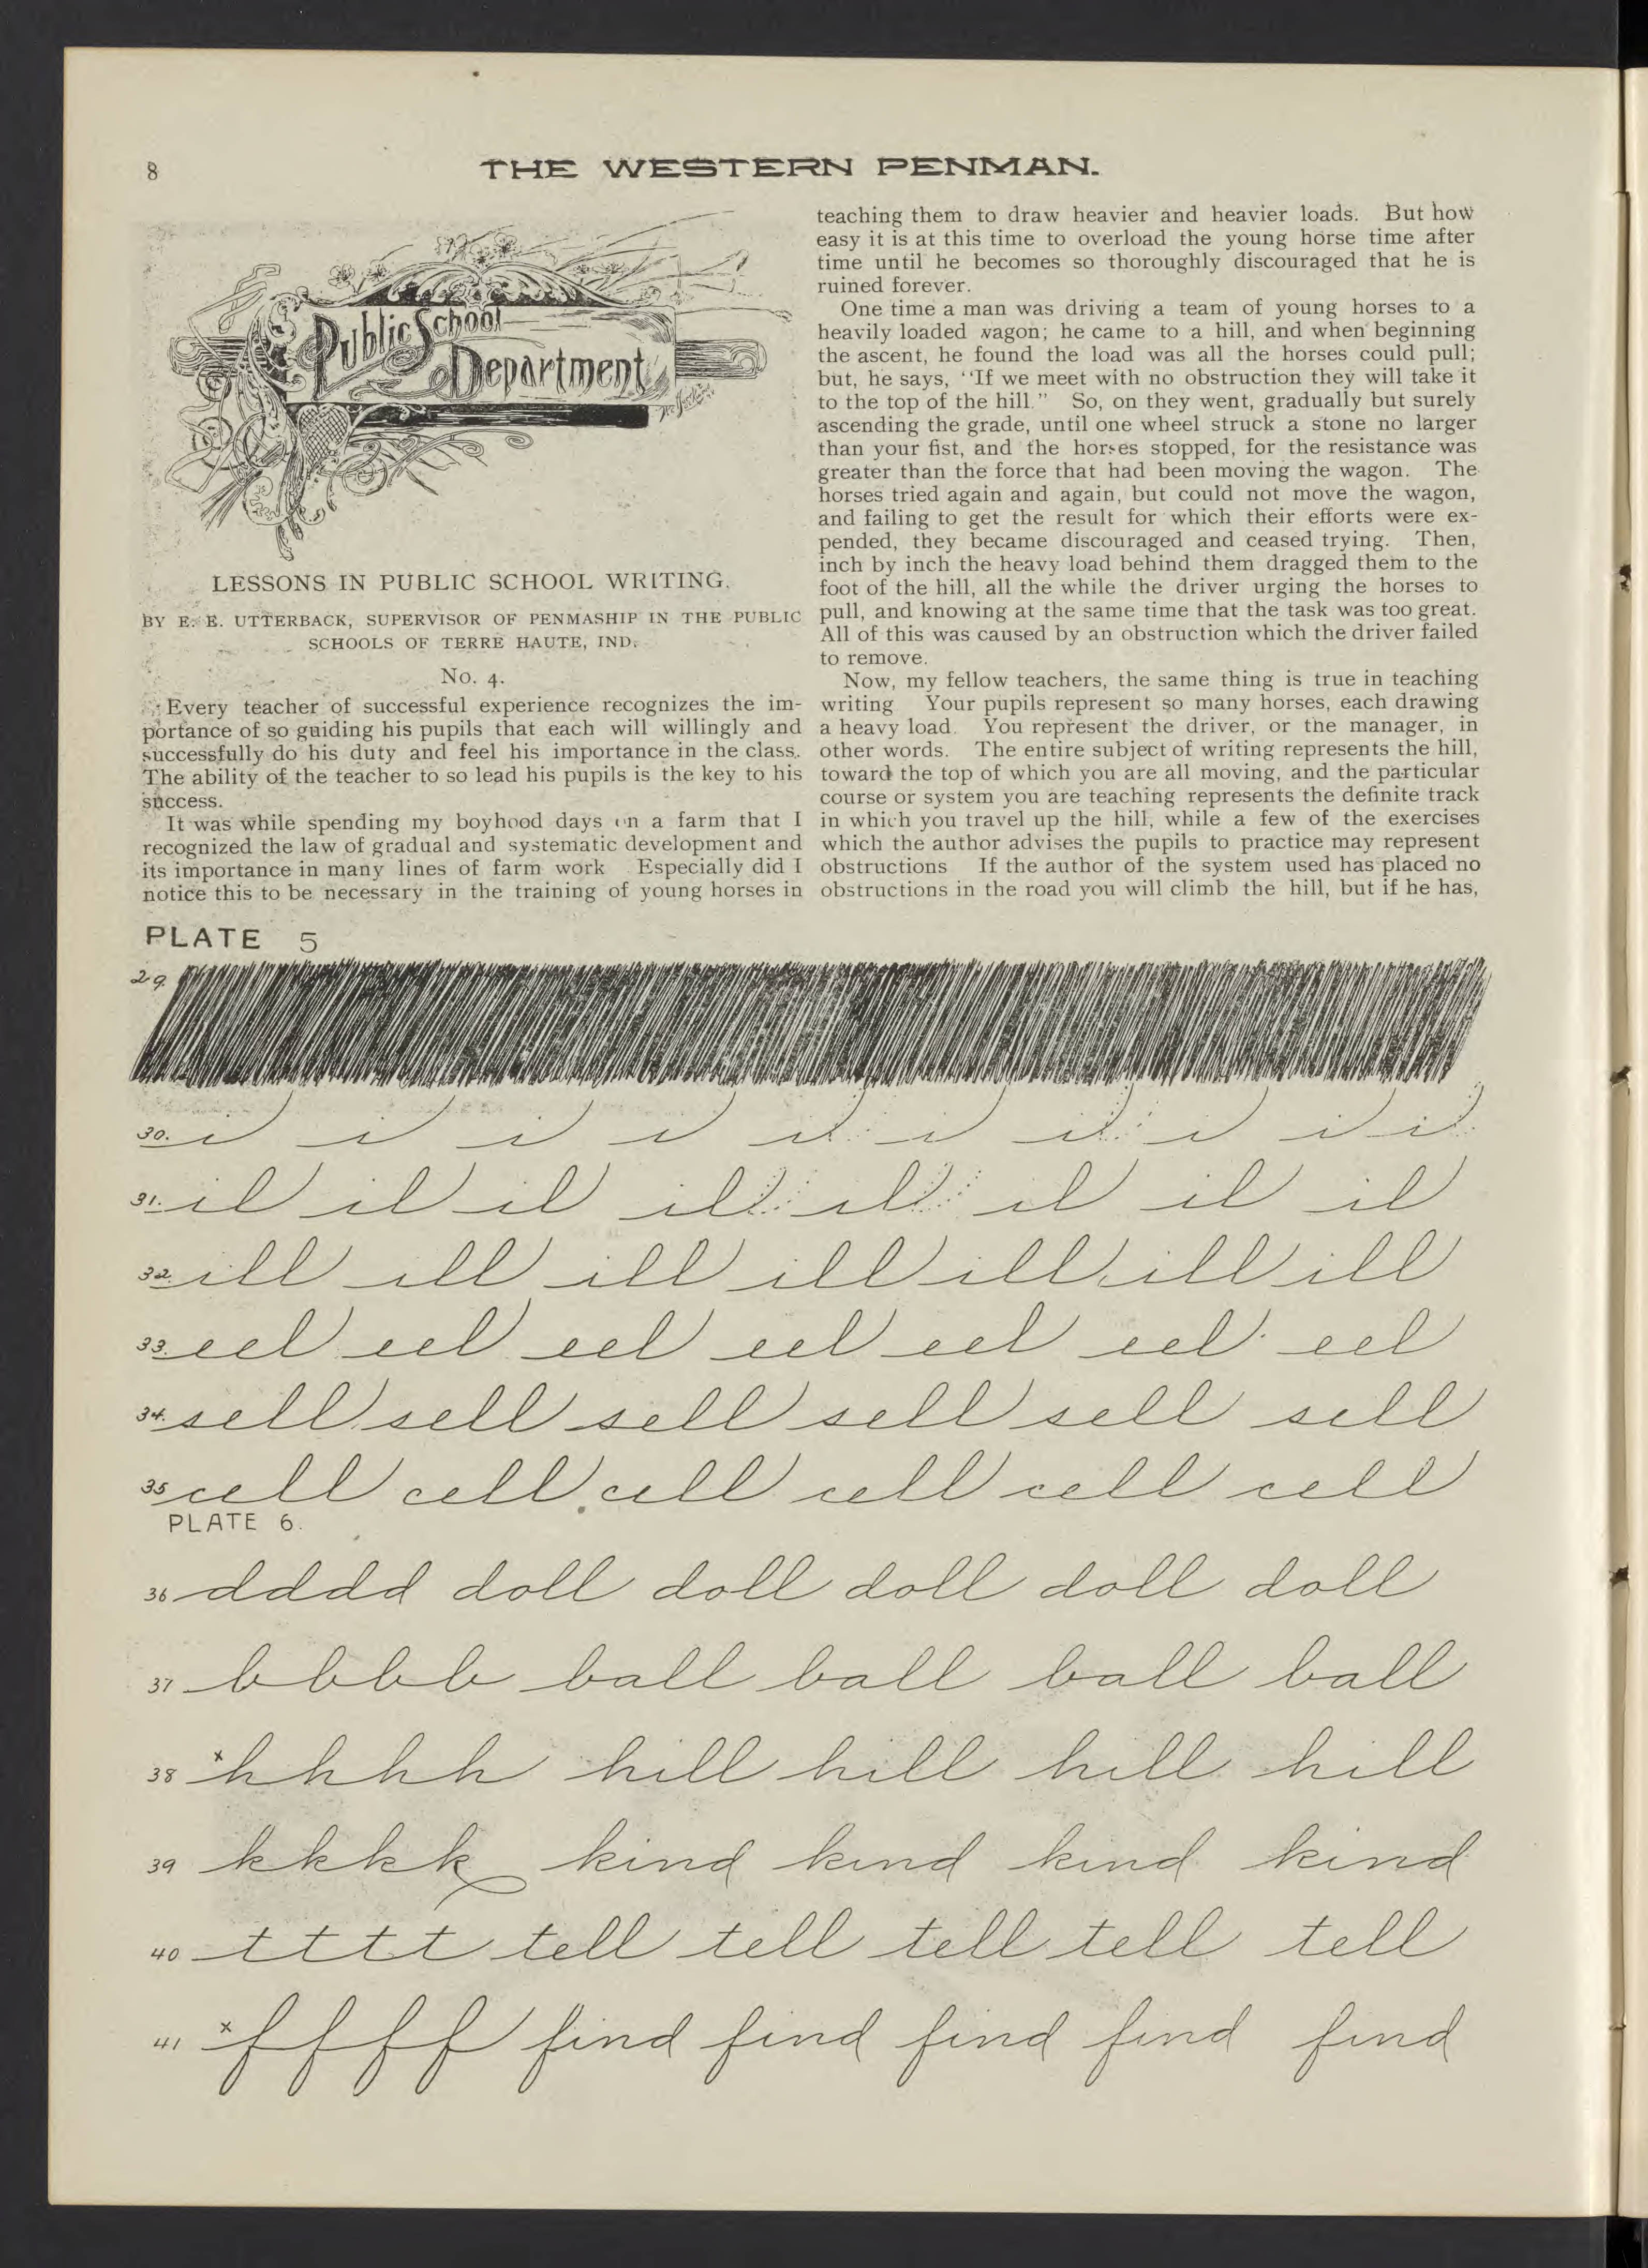 8
THE WESTERN PENMAN.
Public School
Department
LESSONS IN PUBLIC SCHOOL WRITING.
BY E. E. UTTERBACK, SUPERVISOR OF PENMASHIP IN THE PUBLIC
SCHOOLS OF TERRE HAUTE, IND.
No. 4.
Every teacher of successful experience recognizes the im-
portance of so guiding his pupils that each will willingly and
successfully do his duty and feel his importance in the class.
The ability of the teacher to so lead his pupils is the key to his
success.
It was while spending my boyhood days on a farm that I
recognized the law of gradual and systematic development and
its importance in many lines of farm work Especially did I
notice this to be necessary in the training of young horses in
teaching them to draw heavier and heavier loads. But how
easy it is at this time to overload the young horse time after
time until he becomes so thoroughly discouraged that he is
ruined forever.
One time a man was driving a team of young horses to a
heavily loaded wagon; he came to a hill, and when beginning
the ascent, he found the load was all the horses could pull;
but, he says, "If we meet with no obstruction they will take it
to the top of the hill." So, on they went, gradually but surely
ascending the grade, until one wheel struck a stone no larger
than your fist, and the horses stopped, for the resistance was
greater than the force that had been moving the wagon. The
horses tried again and again, but could not move the wagon,
and failing to get the result for which their efforts were ex-
pended, they became discouraged and ceased trying. Then,
inch by inch the heavy load behind them dragged them to the
foot of the hill, all the while the driver urging the horses to
pull, and knowing at the same time that the task was too great.
All of this was caused by an obstruction which the driver failed
to remove.
Now, my fellow teachers, the same thing is true in teaching
writing Your pupils represent so many horses, each drawing
a heavy load. You represent the driver, or the manager, in
other words. The entire subject of writing represents the hill,
toward the top of which you are all moving, and the particular
course or system you are teaching represents the definite track
in which you travel up the hill, while a few of the exercises
which the author advises the pupils to practice may represent
obstructions If the author of the system used has placed no
obstructions in the road you will climb the hill, but if he has,
PLATE 5
29.
30. i i i i i i i i i i
31. il il il il il il il il
32. ill ill ill ill ill ill ill
33. eel eel eel eel eel eel eel
34. sell sell sell sell sell sell
35 cell cell cell cell cell cell
PLATE 6.
36 d d d d doll doll doll doll doll
37 b b b b ball ball ball ball
38 x h h h h hill hill hill hill
39 k k k k kind kind kind kind
40 t t t t tell tell tell tell tell
41 x f f f f find find find find find